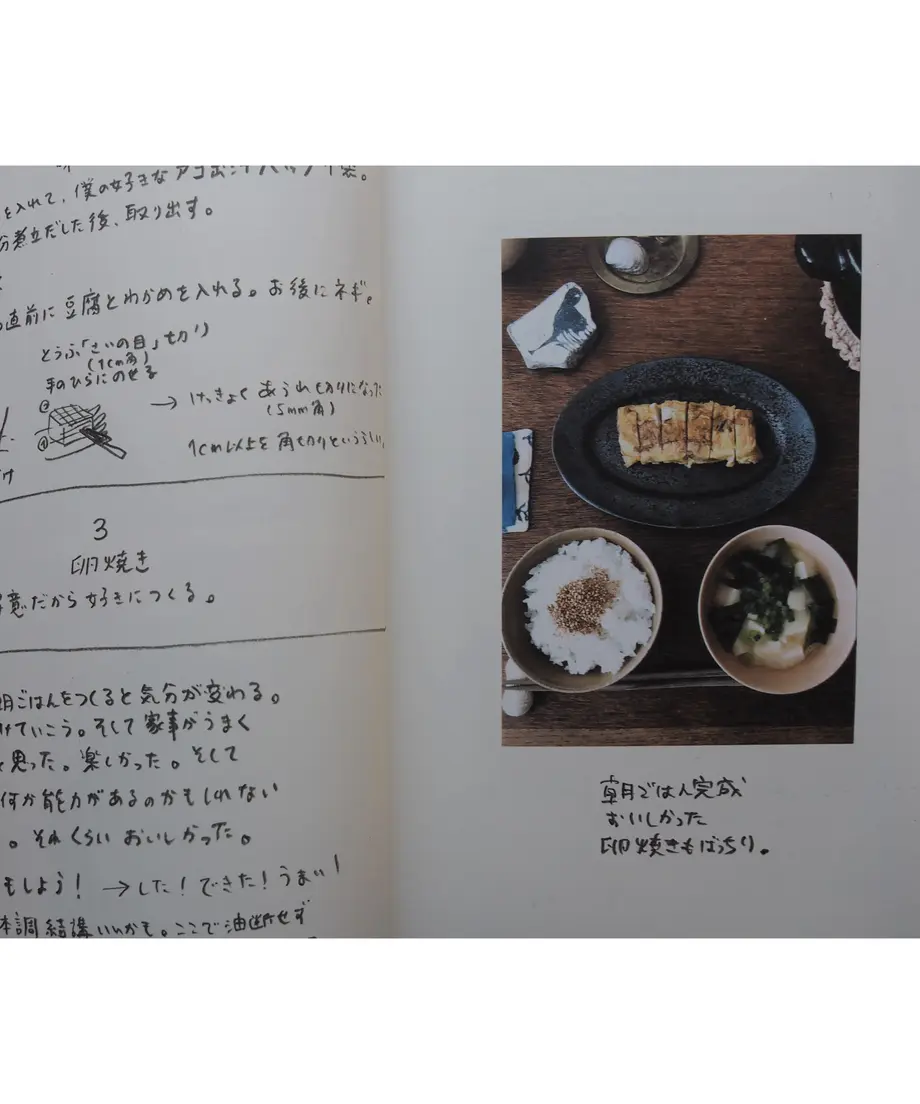 を入れて、僕の好きなアゴ出汁パック1袋。
分煮立だした後、取り出す。
直前に豆腐とわかめを入れる。お後にネギ。
とうふ「さいの目」切り
(1cm角)
手のひらにのせる
②
①
→ けっきょく あられ切りになった
(5mm角)
1cm以上を角切りというらしい
3
卵焼き
意だから好きにつくる。
朝ごはんをつくると気分が変わる。
けていこう。そして家事がうまく
思った。楽しかった。そして
何か能力があるのかもしれない
。それくらいおいしかった。
もしよう! →した!できた!うまい!
体調結構いいかも。ここで油断せず
朝ごはん完成
おいしかった
卵焼きもばっちり。